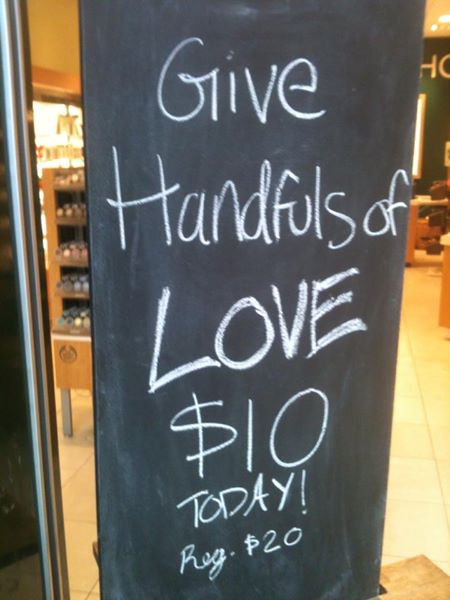 Give
Handfuls of
LOVE
$10
TODAY!
Reg. $20
HO